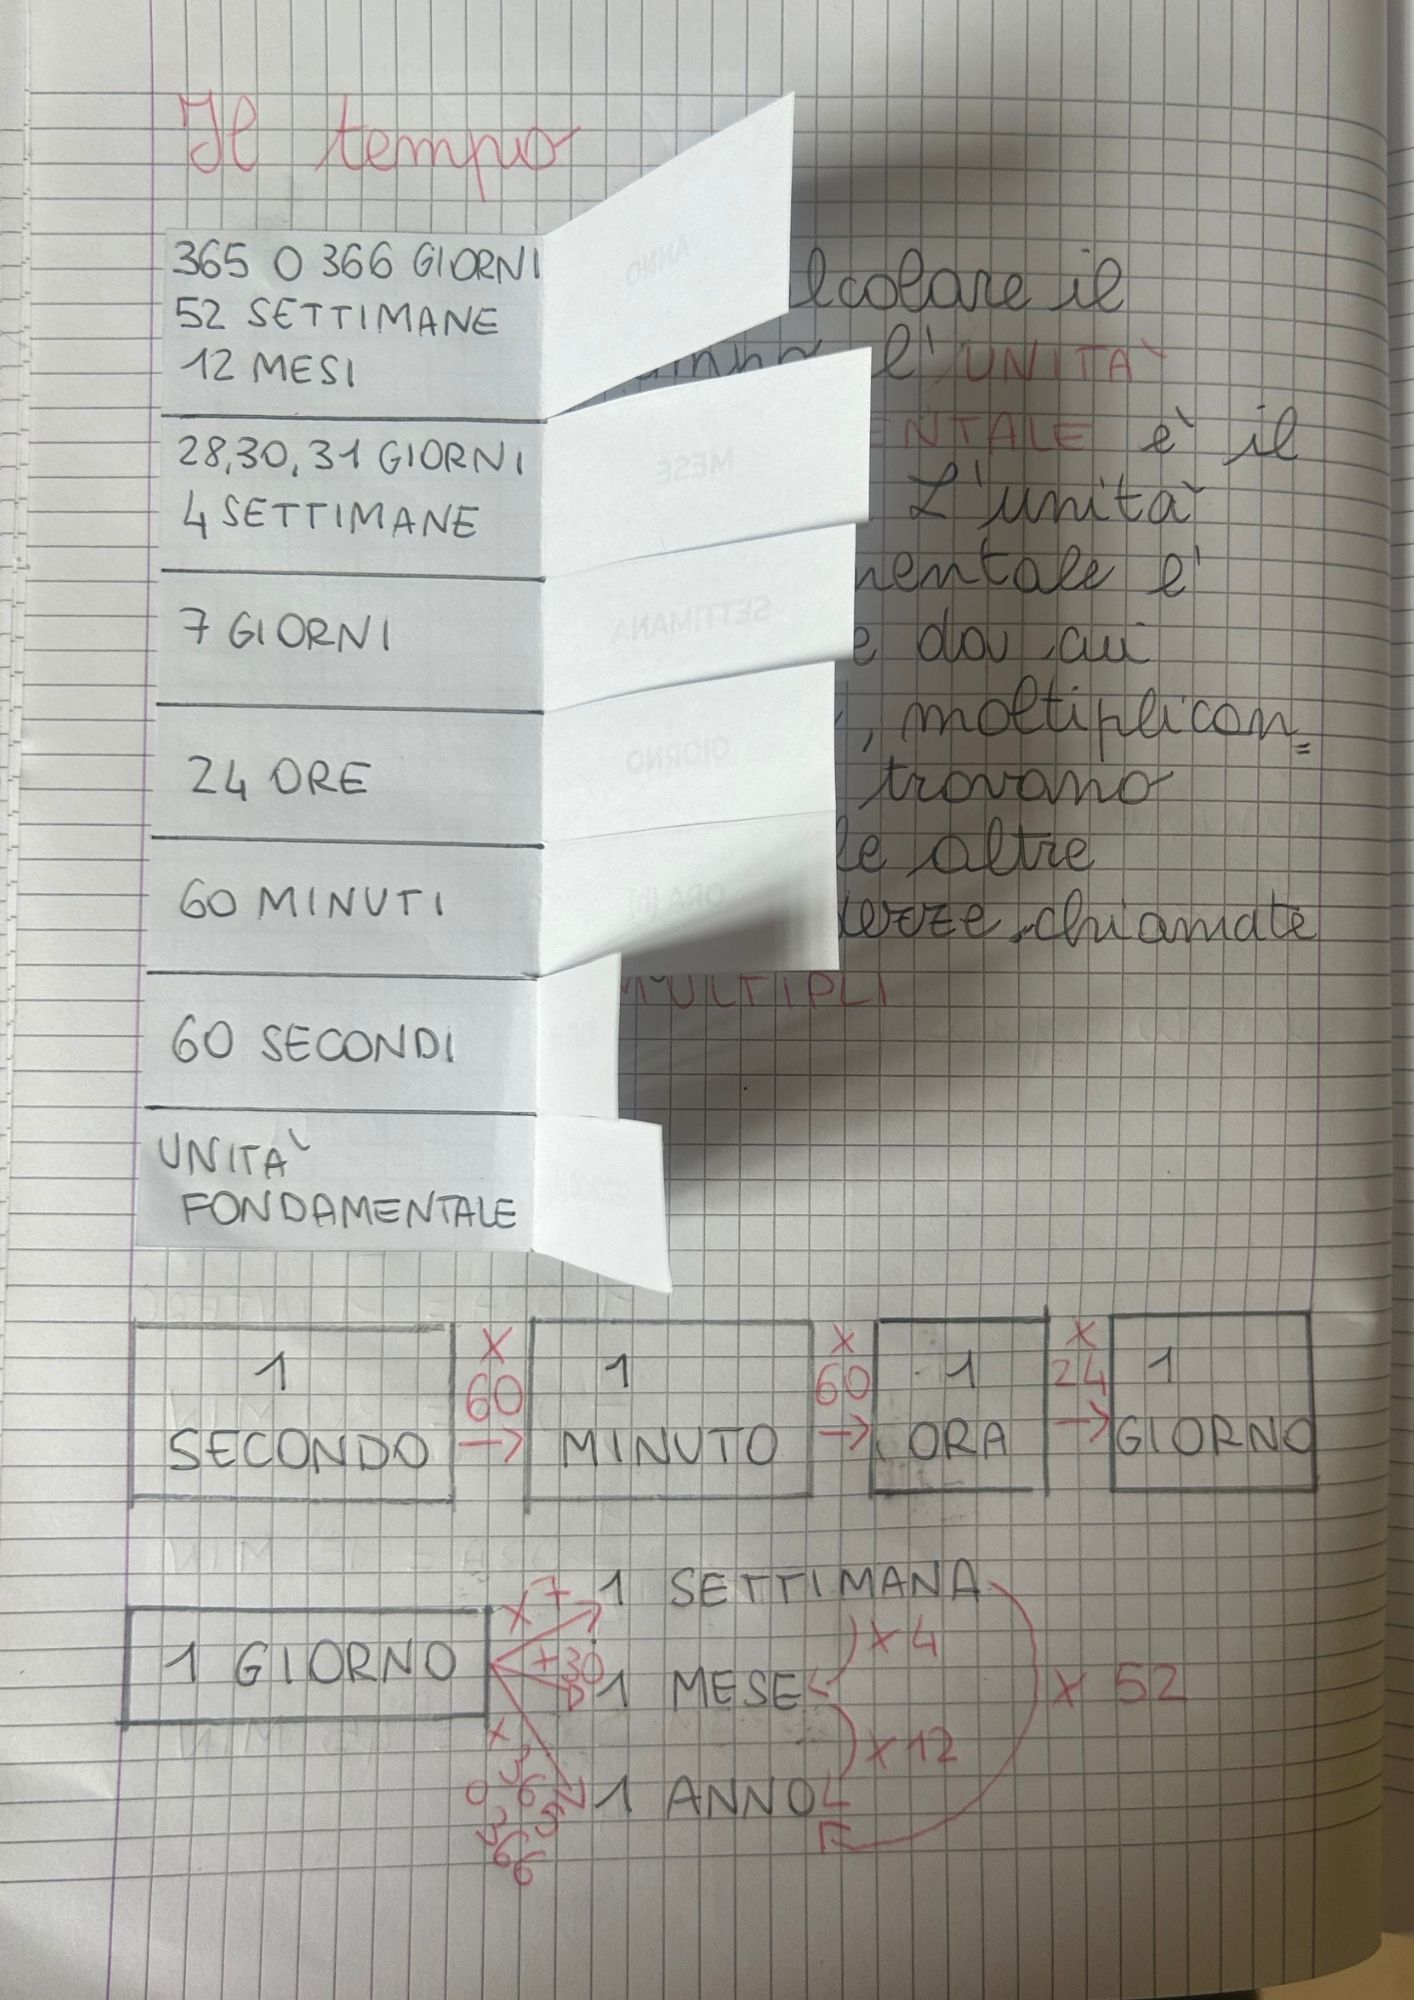 Il tempo
365 O 366 GIORNI
52 SETTIMANE
12 MESI
28,30,31 GIORNI
4 SETTIMANE
7 GIORNI
24 ORE
60 MINUTI
60 SECONDI
UNITA'
FONDAMENTALE
ANNO
MESE
SETTIMANA
GIORNO
ORA (h)
lcolare il
l'UNITA'
NTALE è il
L'unità
mentale è
e da cui
, moltiplican=
trovano
le altre
chiamate
MULTIPLI
1 SECONDO
x 60 →
1 MINUTO
x 60 →
1 ORA
x 24 →
1 GIORNO
1 GIORNO
x 7
1 SETTIMANA
+30
1 MESE
x 365 O 366
1 ANNO
x 4
x 12
x 52